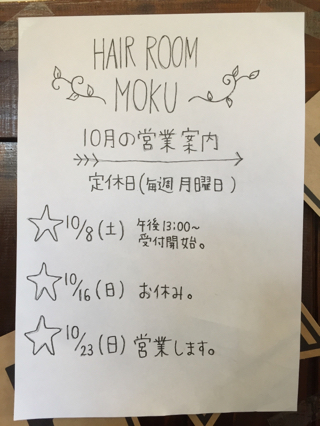 HAIR ROOM
MOKU
10月の営業案内
定休日(毎週月曜日)
10/8(土) 午後13:00~
受付開始。
10/16(日) お休み。
10/23(日) 営業します。